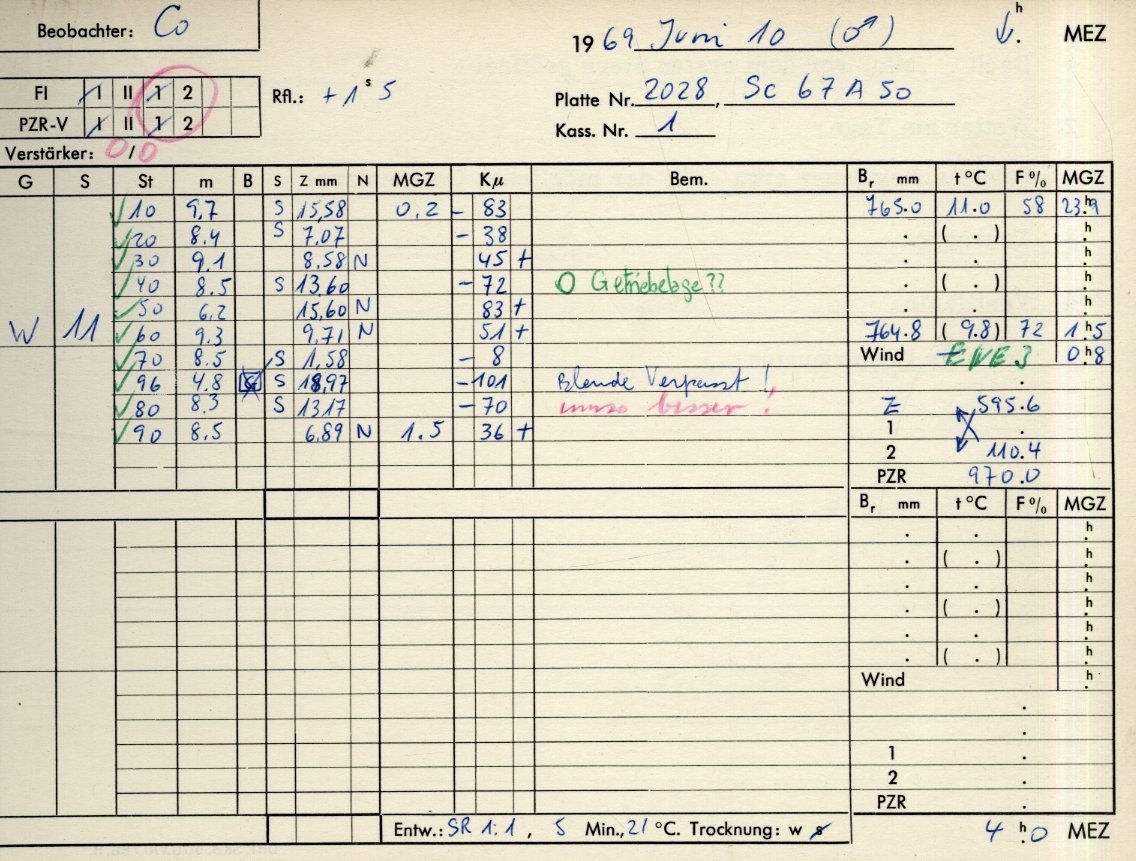 Beobachter: Co
1969 Juni 10 (♂) h . MEZ
FI I II 1 2
PZR-V I II 1 2
Rfl.: +1s5
Platte Nr. 2028, Sc 67 A 50
Kass. Nr. 1
Verstärker: 0/0
G S St m B S Z mm N MGZ Kμ Bem. Br mm t °C F% MGZ
10 9,7 S 15,58 0,2 - 83 765.0 11.0 58 23h9
20 8.4 S 7,07 - 38 . ( . ) h
30 9.1 8,58 N 45 + . . h
40 8.5 S 13,60 - 72 O Getriebelage?? . ( . ) h
50 6,2 15,60 N 83 + . . h
W 11 60 9.3 9,71 N 51 + 764.8 (9.8) 72 1h5
70 8.5 S 1,58 - 8 Wind ENE 3 0h8
96 4.8 S 18,97 -101 Blende Verpasst! .
80 8.3 S 13,17 - 70 umso besser! Z 595.6
90 8.5 6,89 N 1.5 36 + 1 .
2 110.4
PZR 970.0
Br mm t °C F% MGZ
. . h
. ( . ) h
. . h
. ( . ) h
. . h
. ( . ) h
Wind h
.
.
1 .
2 .
PZR .
Entw.: SR 1:1, 5 Min., 21 °C. Trocknung: w s 4h0 MEZ